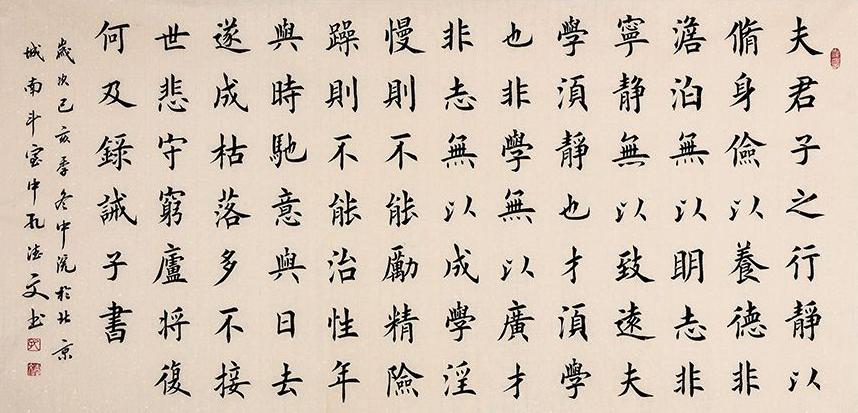 夫君子之行靜以
脩身儉以養德非
澹泊無以明志非
寧靜無以致遠夫
學湏靜也才湏學
也非學無以廣才
非志無以成學淫
慢則不能勵精險
躁則不能治性年
與時馳意與日去
遂成枯落多不接
世悲守窮廬將復
何及錄誡子書
歲次己亥季冬中浣於北京
城南斗室中孔德文书